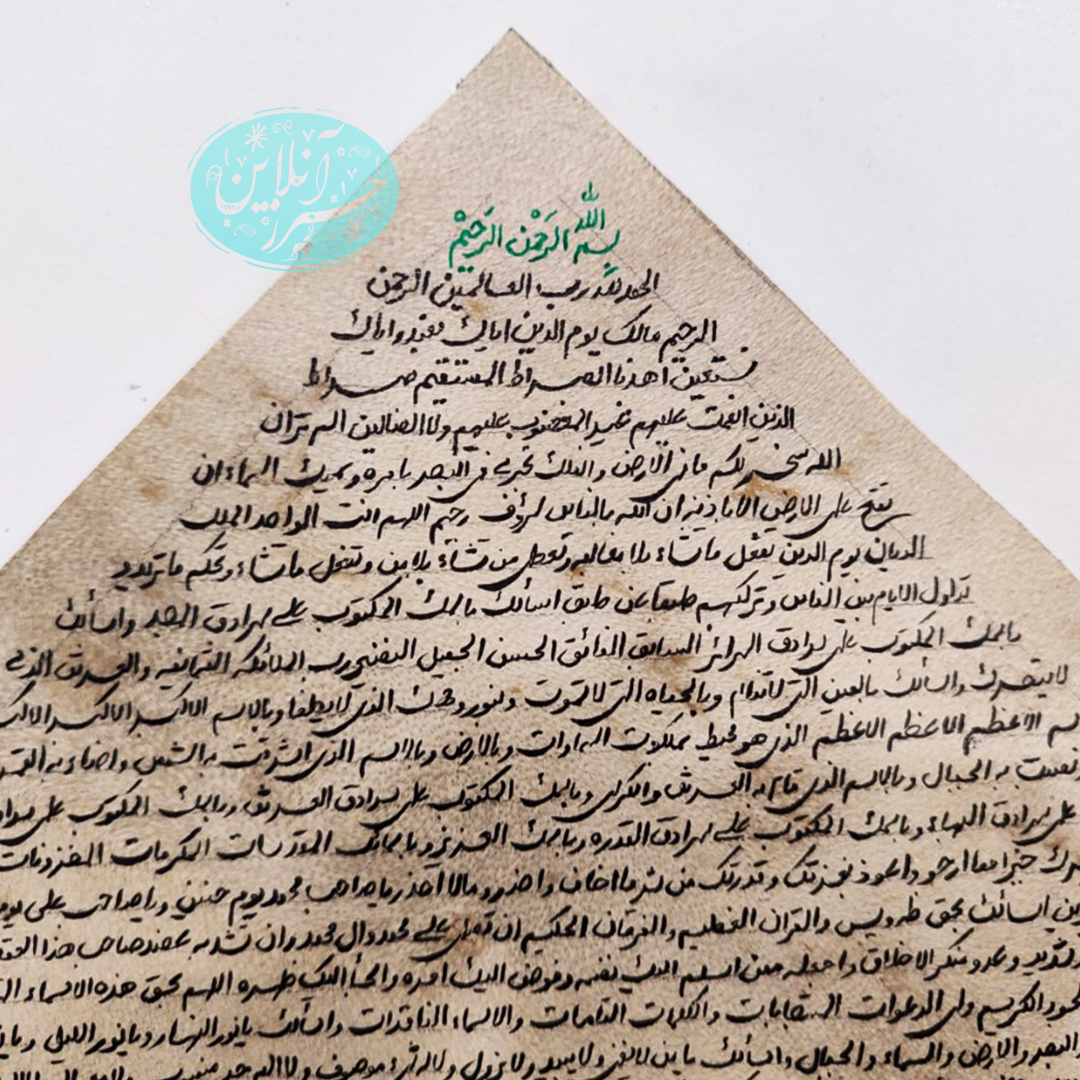 حرز آنلاین
بسم الله الرَحمْن الرَحیْم
الحمد لله رب العالمین الرحمن
الرحیم مالک یوم الدین ایاک نعبد و ایاک
نستعین اهدنا الصراط المستقیم صراط
الذین انعمت علیهم غیر المغضوب علیهم ولا الضالین الم تر ان
الله سخر لکم ما فی الارض و الفلک تجری فی البحر بامره و یمسک السماء ان
تقع علی الارض الا باذنه ان الله بالناس لرؤف رحیم اللهم انت الواحد الملک
الدیان یوم الدین تفعل ما تشاء بلا مغالبه و تعطی من تشاء بلا من و تفعل ما تشاء و تحکم ما ترید
تداول الایام بین الناس و ترکبهم طبقا عن طبق اسألک باسمک المکتوب علی سرادق المجد و اسألک
باسمک المکتوب علی سرادق السرائر السابق الفائق الحسن الجمیل النضیر رب الملائکه الثمانیه و العرش الذی
لا یتحرک و اسألک بالعین التی لا تنام و بالحیاه التی لا تموت و بنور وجهک الذی لا یطفا و بالاسم الاکبر الاکبر الاکبر
الاعظم الاعظم الاعظم الذی هو محیط بملکوت السماوات و الارض و بالاسم الذی اشرقت به الشمس و اضاء به القمر
به الجبال و بالاسم الذی قام به العرش و الکرسی و باسمک المکتوب علی سرادق العرش و باسمک المکتوب علی
علی سرادق البهاء و باسمک المکتوب علی سرادق القدره و باسمک العزیز و باسمائک المقدسات المکرمات المخزونات
خیرا مما ارجو و اعوذ بعزتک و قدرتک من شر ما اخاف و احذر و ما لا احذر یا صاحب محمد یوم حنین و یا صاحب علی یوم
اسألک بحق طه و یس و القران العظیم و الفرقان الحکیم ان تصلی علی محمد و ال محمد و ان تشد به عضد صاحب هذا العقد
الاخلاق و اجعله ممن اسلم الیک نفسه و فوض الیک امره و الجأ الیک ظهره اللهم بحق هذه الاسماء
الکریم ولی الدعوات المستجابات و الکلمات التامات و الاسماء النافذات و اسألک یا نور النهار و یا نور اللیل و یا
البحر و الارض و السماء و الجبال و اسألک یا من لا یفنی و لا یبید و لا یزول و لا له شیء موصوف و لا الیه حد منسوب